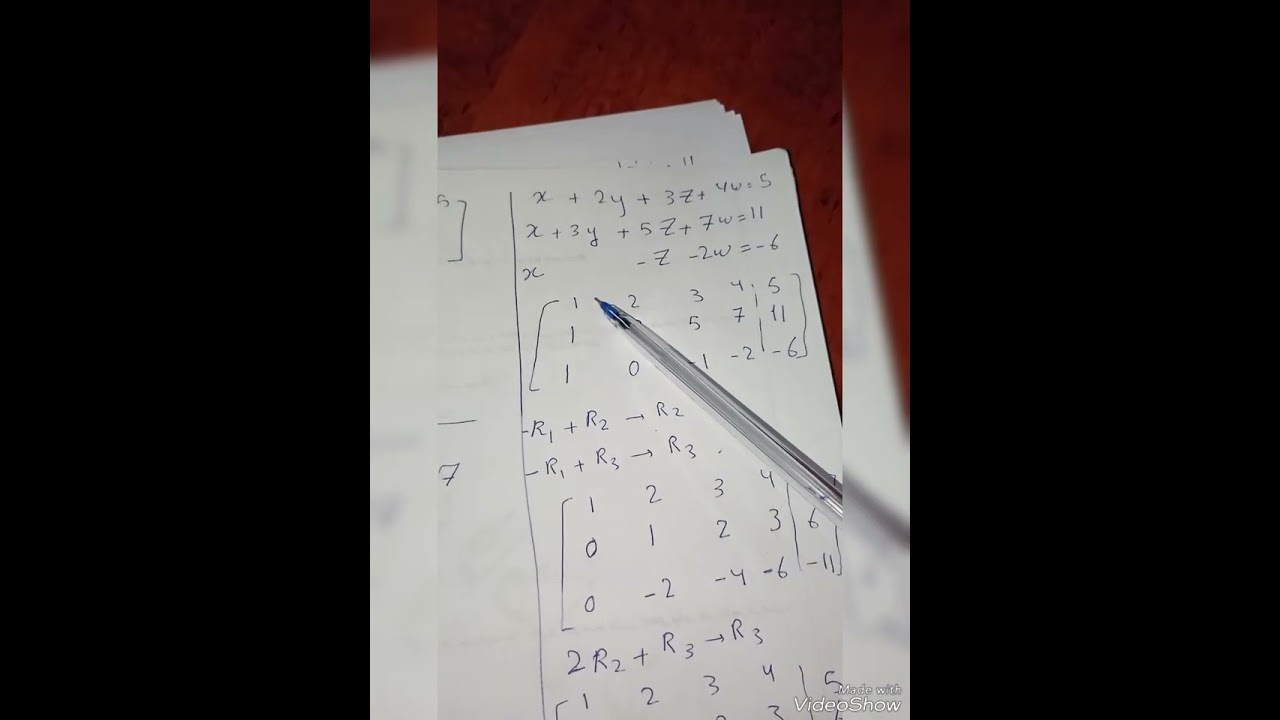 5
]
7
x + 2y + 3z + 4w = 5
x + 3y + 5z + 7w = 11
x - z - 2w = -6
[ 1 2 3 4 | 5 ]
1 5 7 | 11
1 0 -1 -2 | -6 ]
-R1 + R2 → R2
-R1 + R3 → R3
[ 1 2 3 4 |
0 1 2 3 | 6
0 -2 -4 -6 | -11 ]
2R2 + R3 → R3
[ 1 2 3 4 | 5
3
Made with
VideoShow